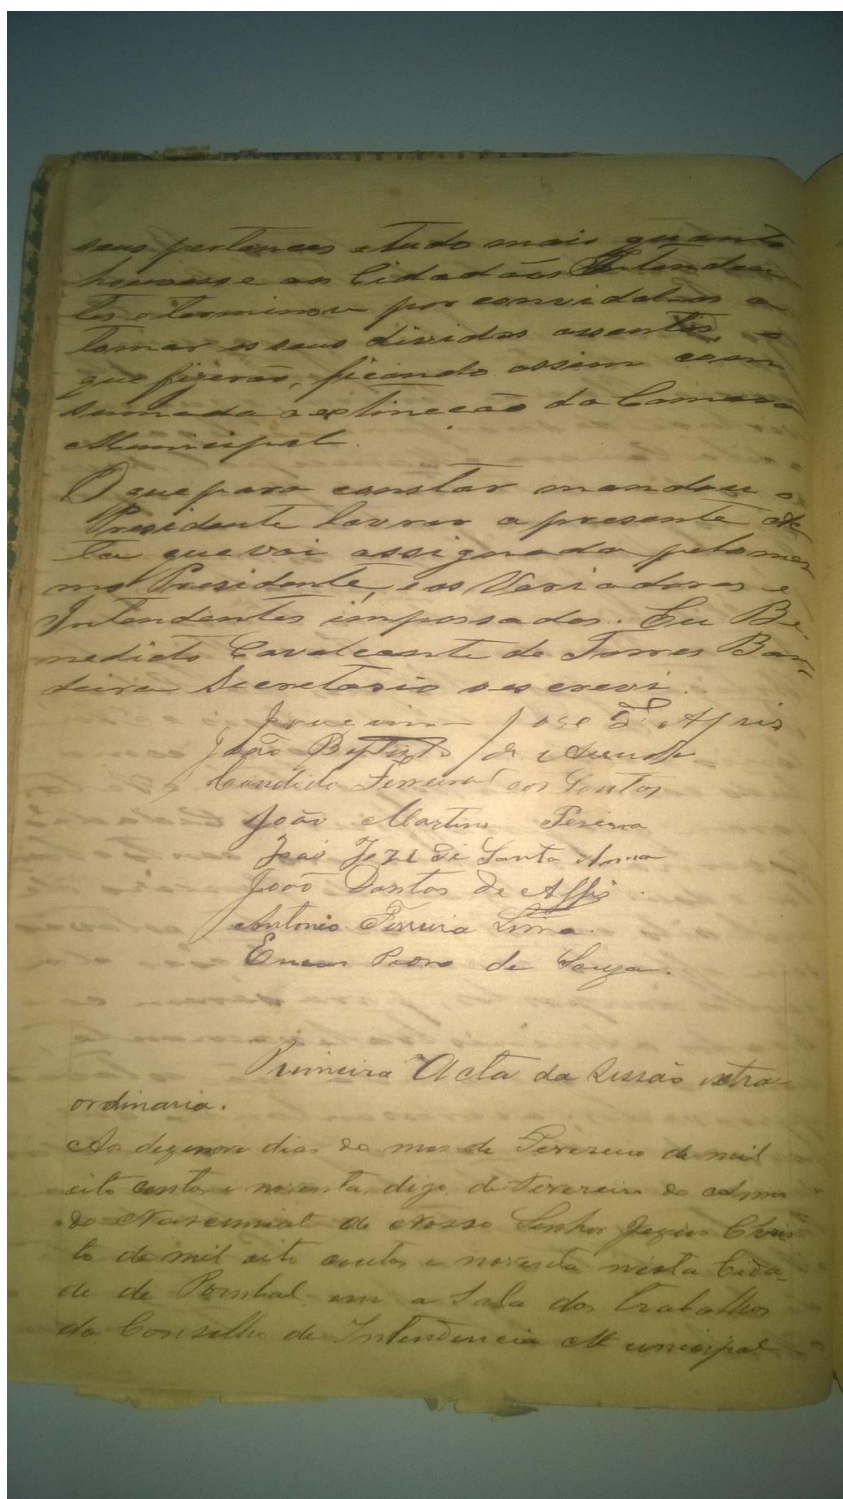 seus pertences e tudo mais quanto
houvesse aos Cidadãos Intenden-
tes e terminou por convidal-os a
tomar os seus dividos assentos, o
que fizerão, ficando assim con
sumada a extincção da Camara
Municipal.
O que para constar mandou o
Presidente lavrar a presente Ac
ta que vai assignada pelo mes-
mo Presidente, e os Veriadores e
Intendentes impossados. Eu Be-
nedicto Cavalcante de Torres Ban-
deira Secretario o escrevi.
Joaquim José de Assis
João Baptista de
Candido Ferreira dos Santos
João Martins Pereira
João Jozé de Santa Anna
João Dantas de Assis.
Antonio Ferreira Lima.
Eneas Pedro de Souza.
Primeira Acta da Sessão extra-
ordinaria.
Ao dezenove dias do mes de Fevereiro de mil
oito centos e noventa, digo de Fevereiro do Anno
do Nascimento de Nosso Senhor Jezus Chris
to de mil oito centos e noventa nesta Cida-
de de Pombal em a Sala dos trabalhos
do Conselho de Intendencia Municipal